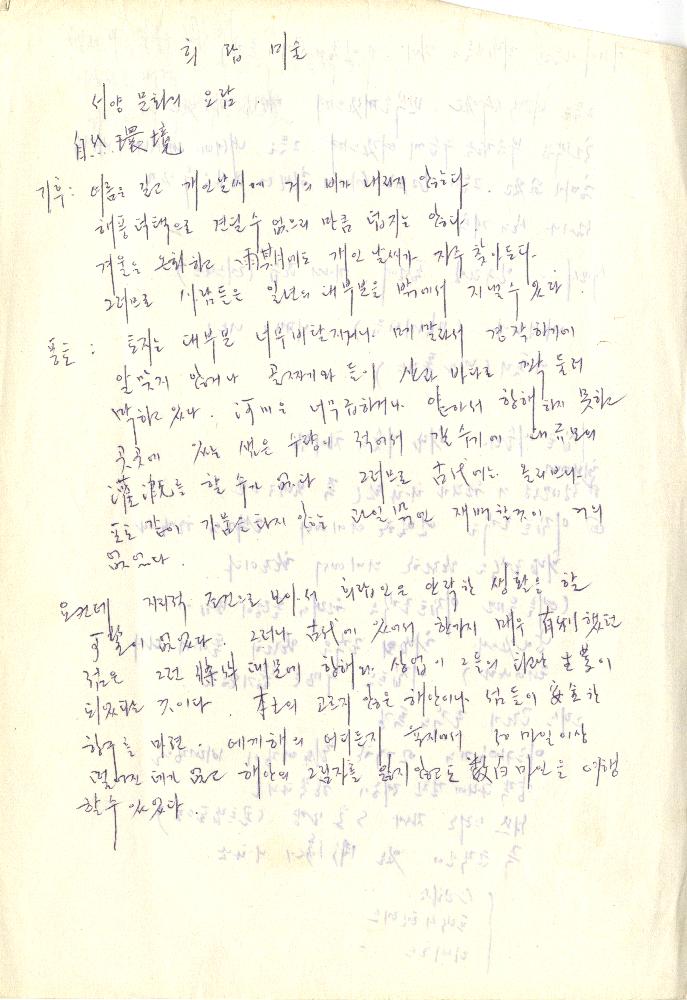 희랍 미술
서양 문화의 요람
自然 環境
기후 : 여름은 길고 개인날씨에 거의 비가 내리지 않는다.
해풍덕택으로 견딜수 없으리 만큼 덥지는 않다
겨울은 온화하고 雨期에도 개인 날씨가 자주 찾아든다.
그러므로 사람들은 일년의 대부분을 밖에서 지낼수 있다.
풍토 : 토지는 대부분 너무 비탈지거나 메말라서 경작하기에
알맞지 않거나 골짜기와 들이 산과 바다로 꽉 둘러
막혀 있다. 河川은 너무 급하거나 얕아서 항해하지 못하고
곳곳에 있는 샘은 수량이 적어서 갈수기에 대규모의
灌漑를 할 수가 없다 그러므로 古代에는 올리브나
포도 같이 가뭄을 타지 않는 과일 재배할것이 거의
없었다.
요컨데 지리적 조건으로 보아서 희랍인은 안락한 생활을 할
수 없었다. 그러나 古代에 있어서 한가지 매우 有利했던
점은 그런 條件 때문에 항해와 상업이 그들의 되
되었다는 것이다. 本土의 고르지 않은 해안이나 섬들이 安全한
항구를 마련. 에게해의 어디든지 육지에서 50 마일이상
떨어진 데가 없고 해안의 그림자를 잃지않고도 数百마일을 여행
할수 있었다.